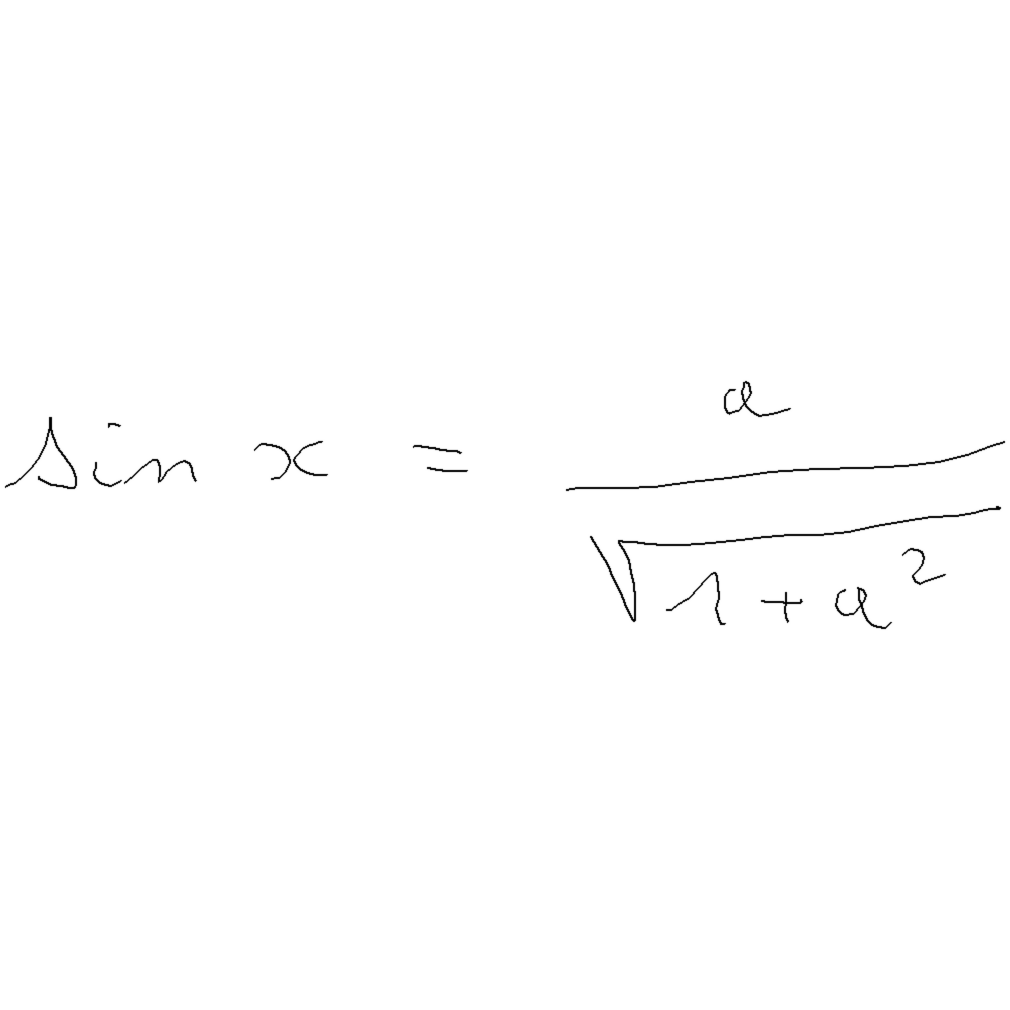 sin x = \frac{a}{\sqrt{1+a^2}}